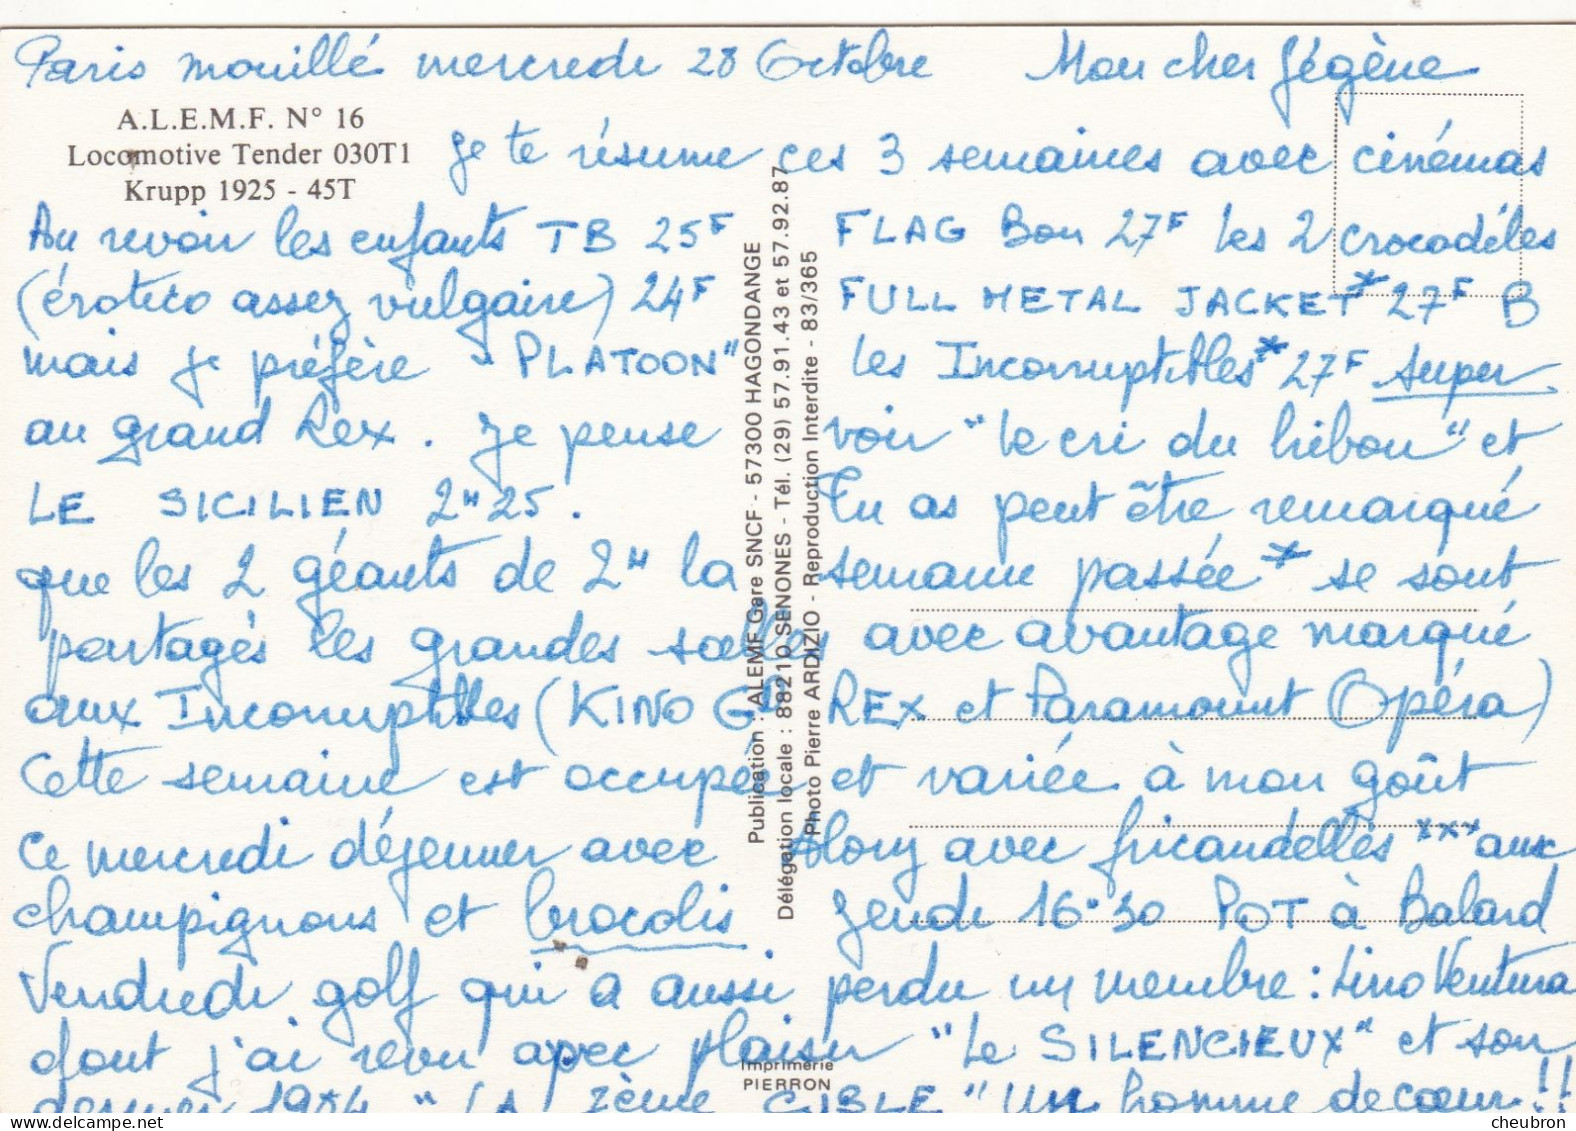 Paris mouillé mercredi 28 Octobre Mon cher Gégène
A.L.E.M.F. N° 16
Locomotive Tender 030T1
Krupp 1925 - 45T
Je te résume ces 3 semaines avec cinémas
Au revoir les enfants TB 25F FLAG Bon 27F les 2 crocodiles
(érotico assez vulgaire) 24F FULL METAL JACKET* 27F B
mais je préfère "PLATOON" les Incorruptibles* 27F super
au grand Rex. Je pense voir "le cri du hibou" et
LE SICILIEN 2H25. Tu as peut être remarqué
que les 2 géants de 2H la semaine passée* se sont
partagés les grandes salles avec avantage marqué
aux Incorruptibles (KINO GD REX et Paramount Opéra)
Cette semaine est occupée et variée à mon goût
Ce mercredi déjeuner avec avec fricandelles *** aux
champignons et brocolis Jeudi 16.30 POT à Balard
Vendredi golf qui a aussi perdu un membre : Lino Ventura
dont j'ai revu avec plaisir "Le SILENCIEUX" et son
dernier 1984 "LA 7ème CIBLE" Un homme de cœur !!
Publication : ALEMF Gare SNCF - 57300 HAGONDANGE
Délégation locale : 88210 SENONES - Tél. (29) 57.91.43 et 57.92.87
Photo Pierre ARDIZIO - Reproduction Interdite - 83/365
Imprimerie
PIERRON
cheubron